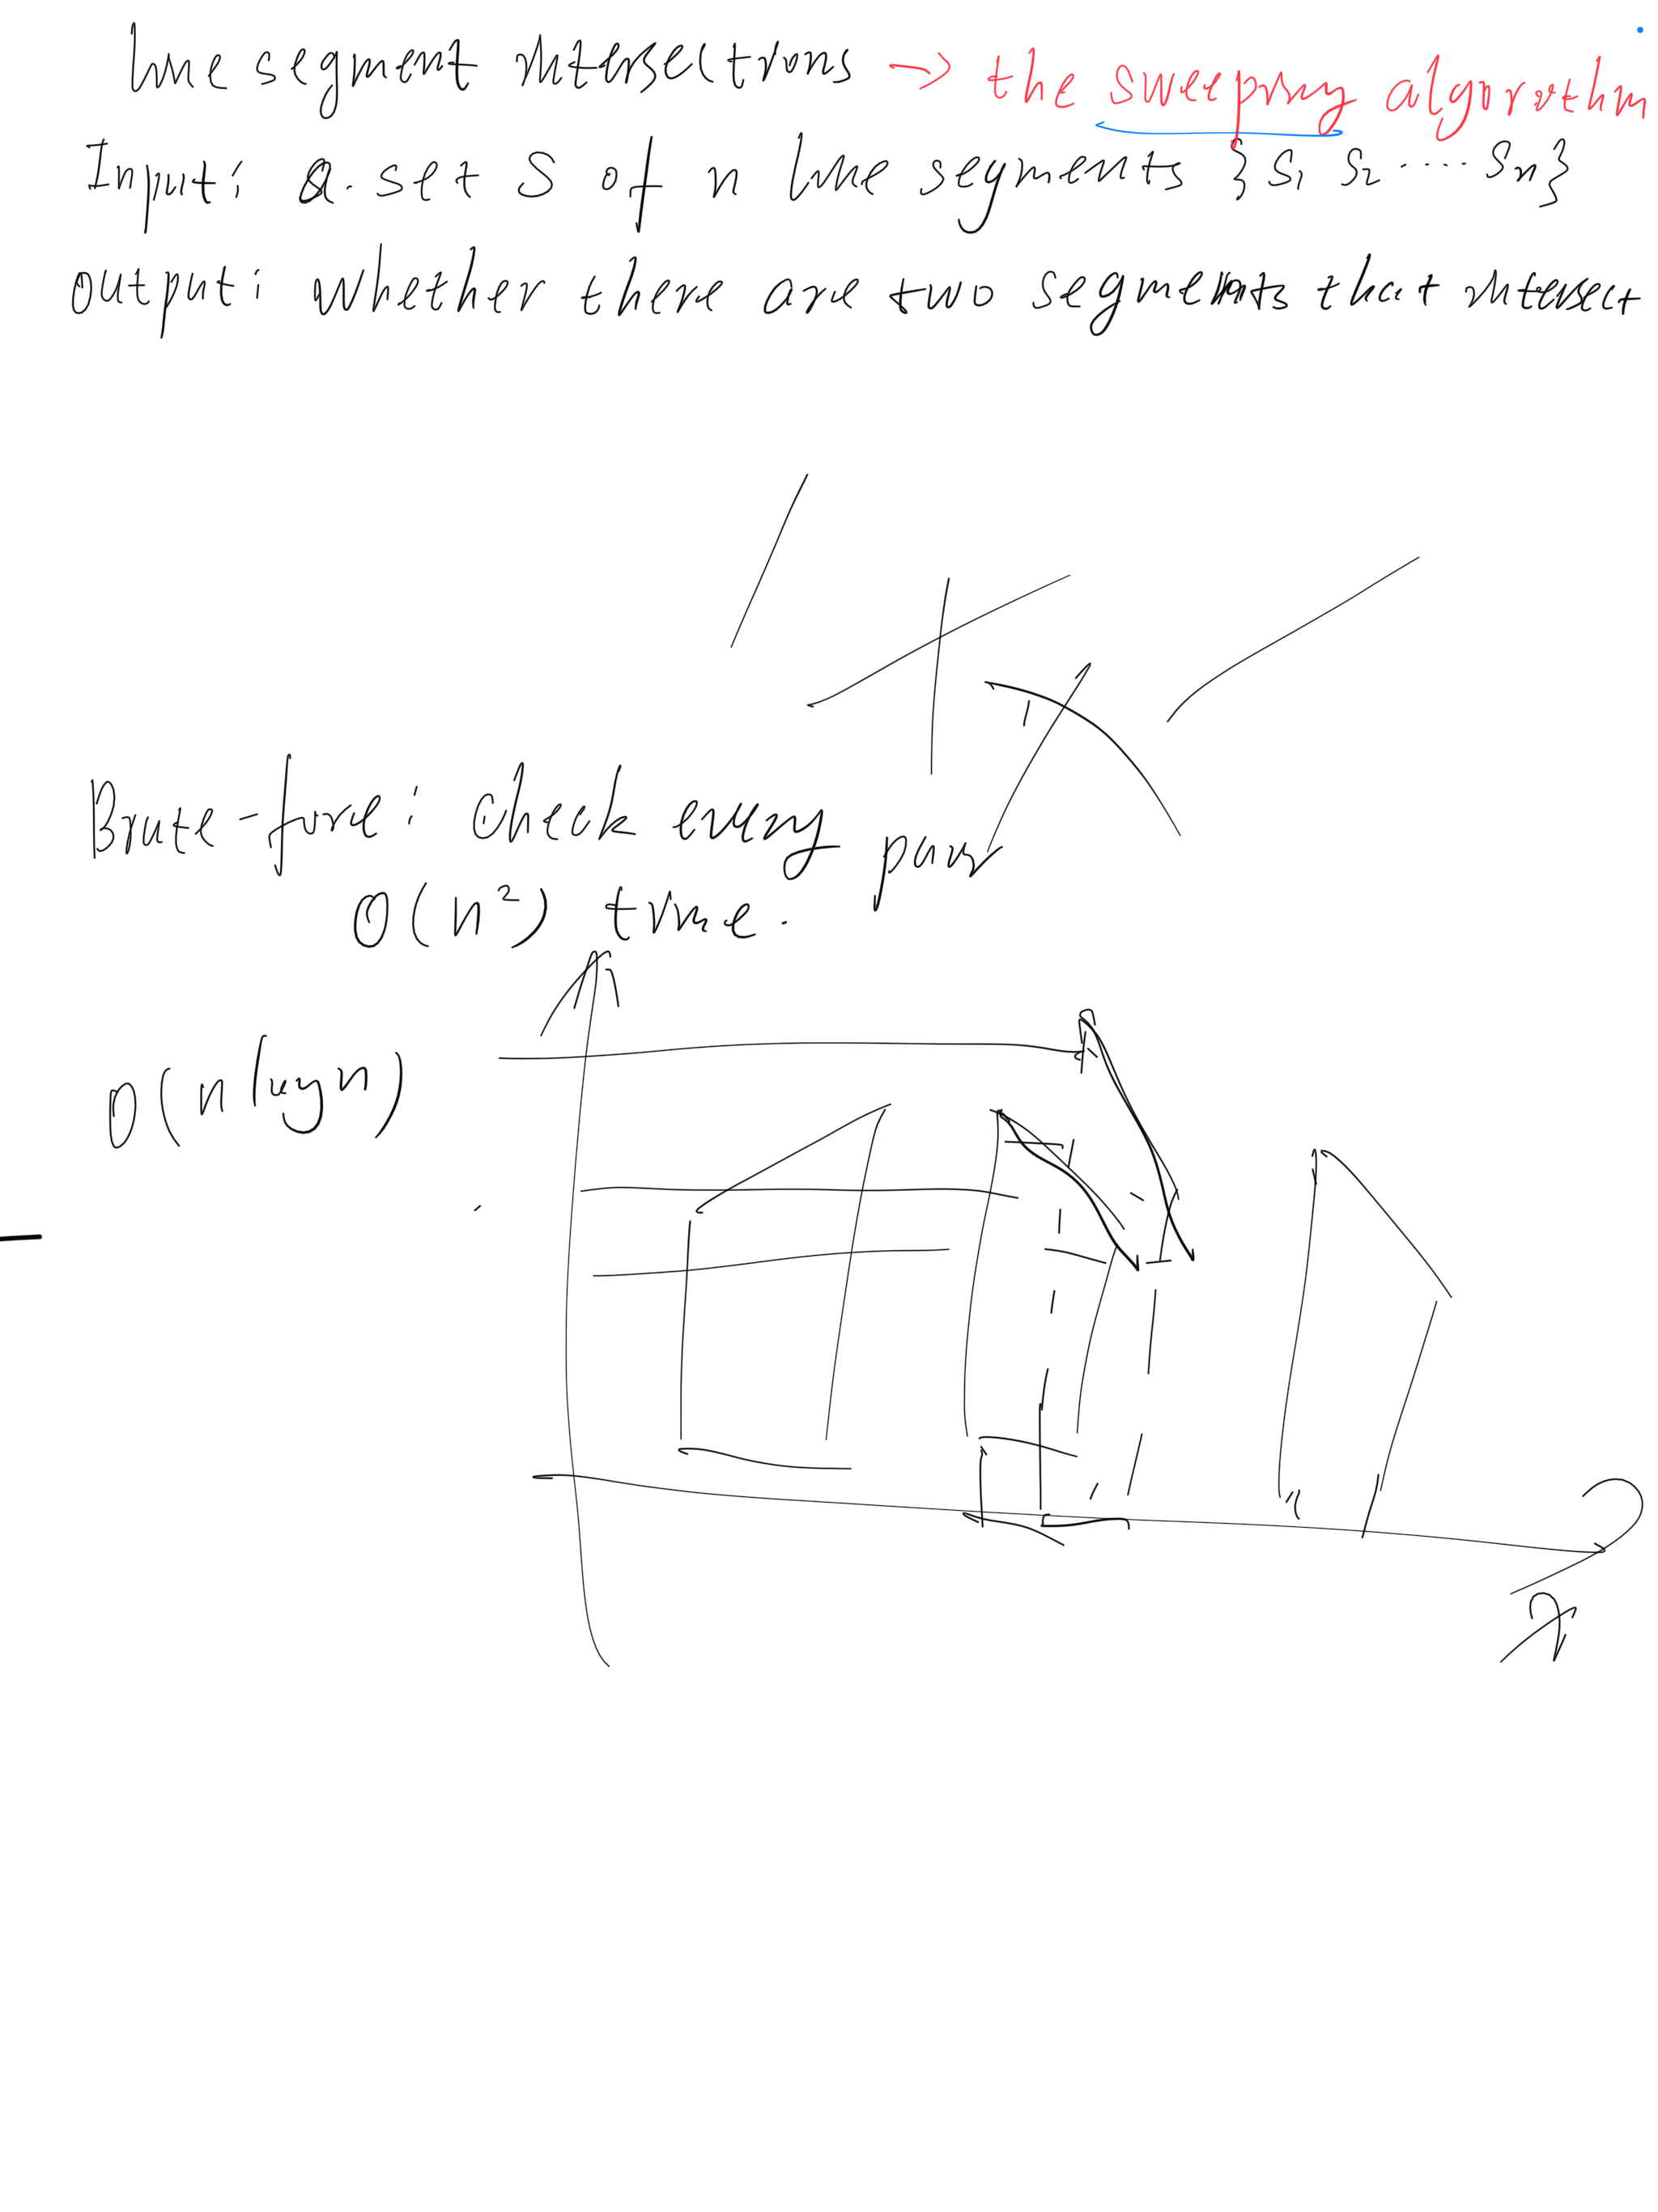 line segment intersections → the sweeping algorithm
Input: a set S of n line segments {S1 S2 ..... Sn}
output: whether there are two segments that intersect
Brute-force: check every pair
O(n²) time.
O(n log n)
x